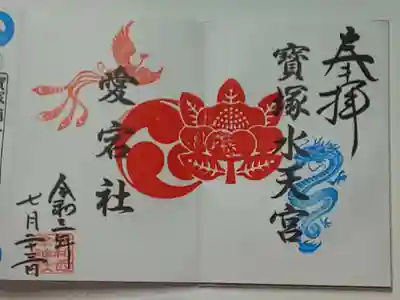 奉拝
寳塚水天宮
愛宕社
令和三年
七月二十三日